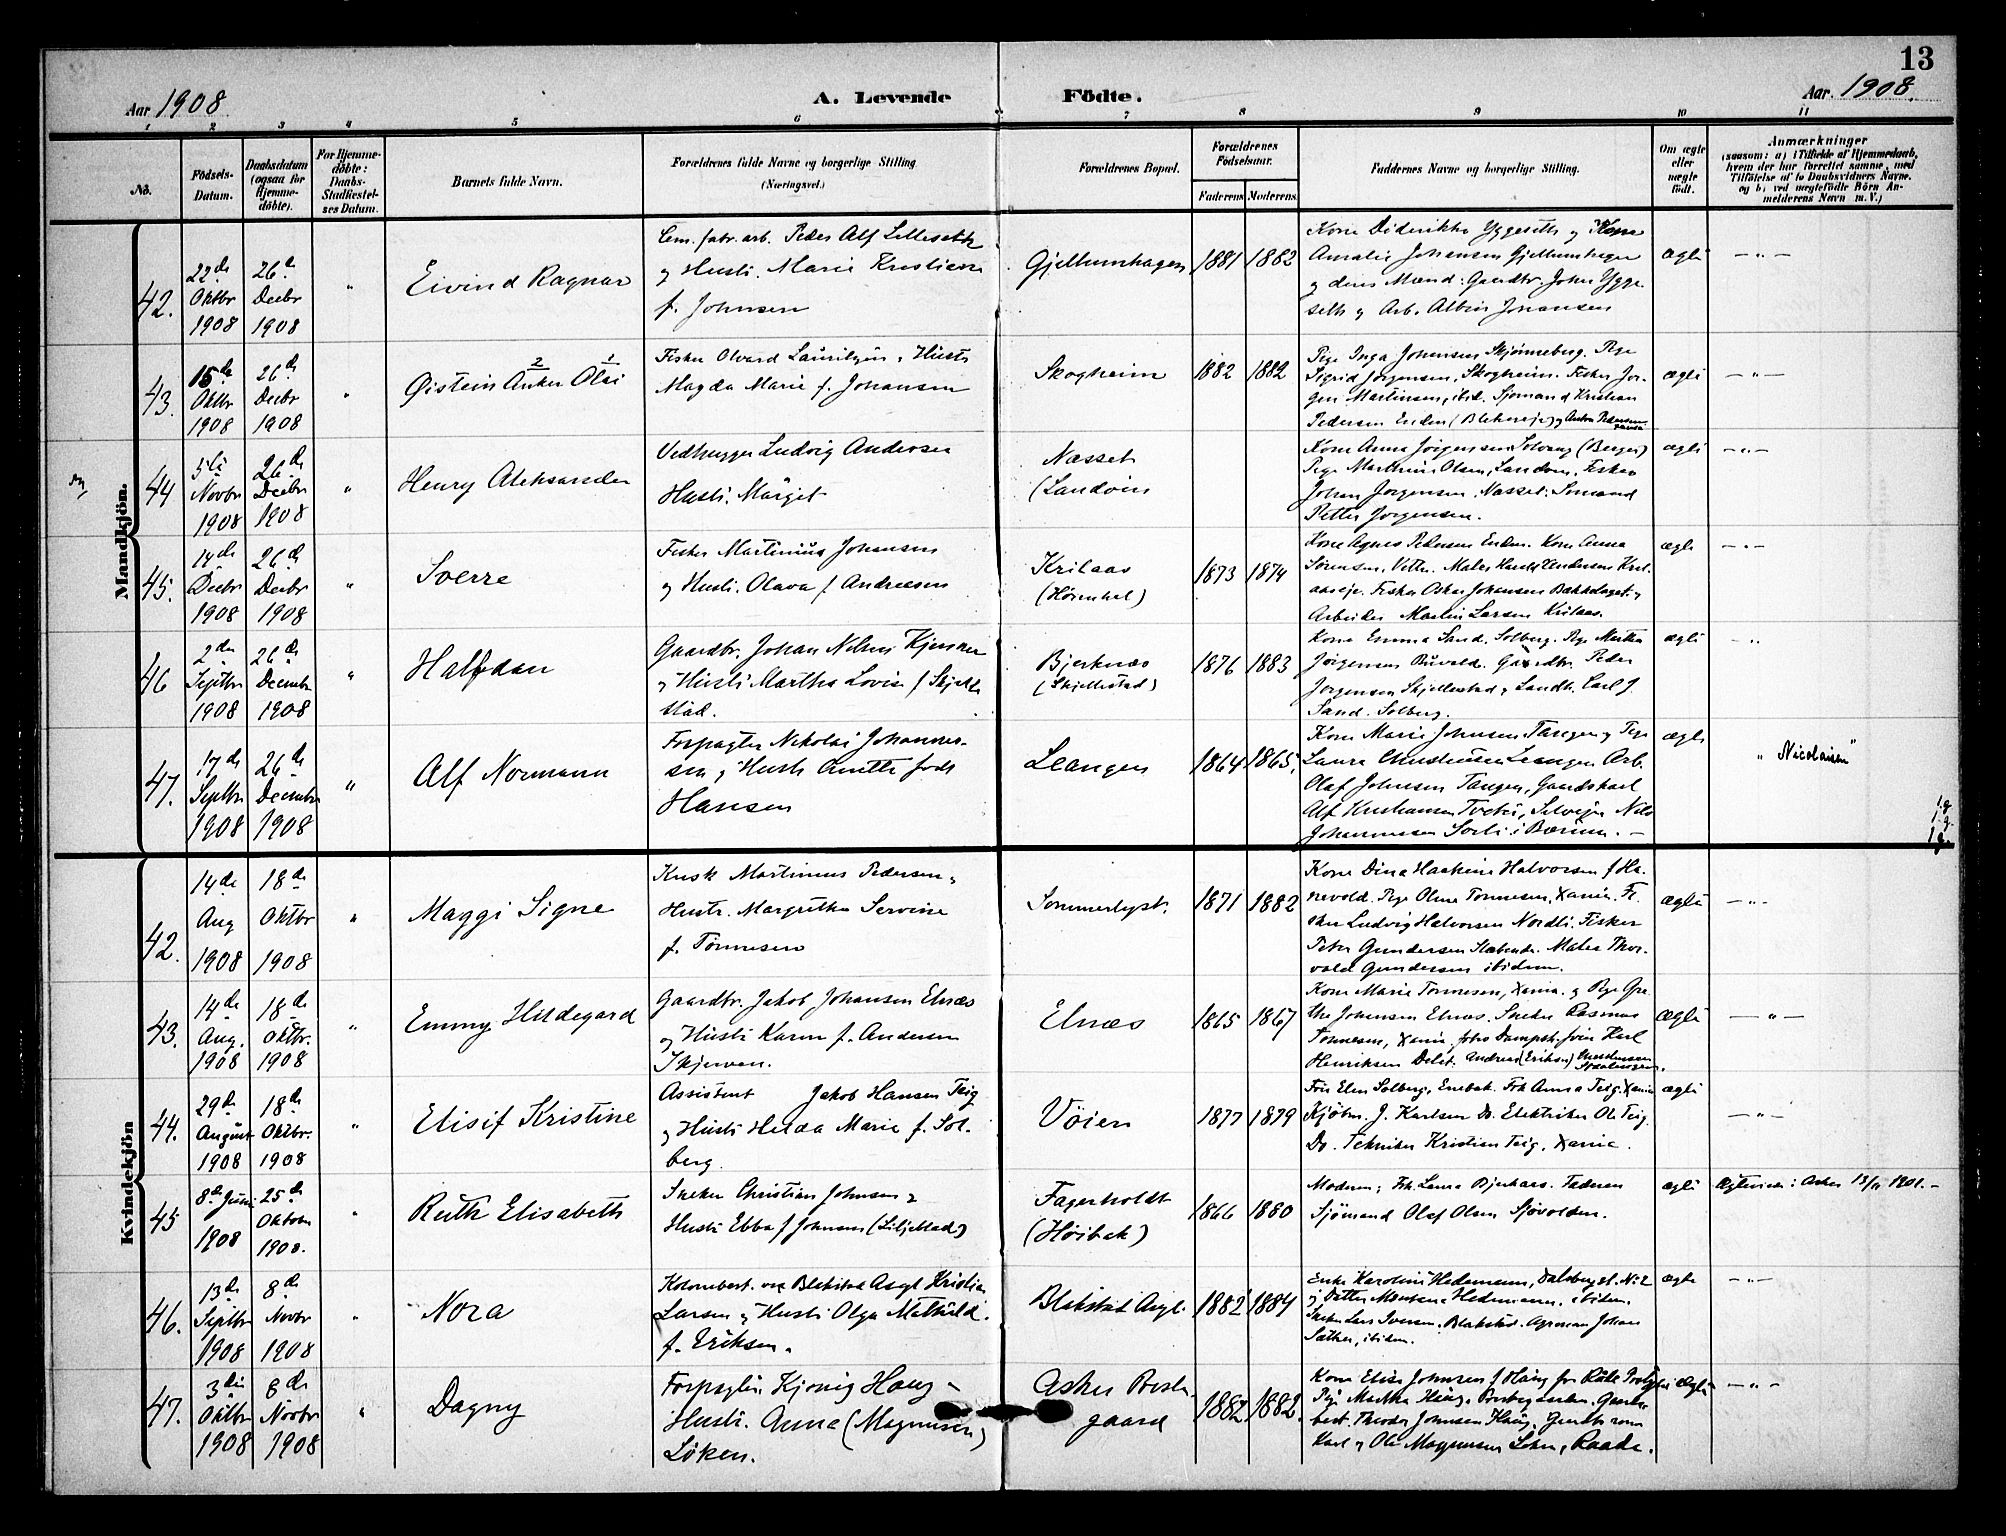 13
Aar 1908
A. Levende Födte.
Aar. 1908.
1 2 3 4 5 6 7 8 9 10 11
No.
Födsels-Datum.
Daabsdatum (ogsaa for Hjemme-döbte).
For Hjemme-döbte: Daabs-Stadfæstel-ses Datum.
Barnets fulde Navn.
Forældrenes fulde Navne og borgerlige Stilling. (Næringsvei.)
Forældrenes Bopæl.
Forældrenes Födselsaar.
Faderens Moderens
Faddernes Navne og borgerlige Stilling.
Om ægte eller uægte födt.
Anmærkninger
(saasom: a) i Tilfælde af Hjemmedaab, hvem der har forrettet samme, med Tilföielse af to Daabsvidners Navne, og b) ved uægtefödte Börn An-melderens Navn m. V.)
Mandkjön.
42.
22de Oktbr 1908
26de Decbr 1908
"
Eivind Ragnar
Cem. fabr. arb. Peder Alf Lillesæth
og Hustr. Marie Kristiane
f. Johnsen
Gjellumhagen
1881 1882
Kone Diderikke Yggeseth og Kone
Amalie Johansen Gjellumhagen
og deres Mænd: Gaardbr. John Ygge
seth og Arb. Albin Johansen
ægte
— " —
43.
15de Oktbr 1908
26de Decbr 1908
"
2 1
Øistein Anker Olai
Fisker Olvard Lauritzen, Hustr
Magda Marie f. Johansen
Skogheim
1882 1882
Pige Inga Johansen Skjønneberg. Pige
Sigrid Jørgensen, Skogheim. Fisker Jør-
gen Martinsen, ibid. Sjømand Kristian
Pedersen Enden
ægte
— " —
44
5te Novbr 1908
26de Decbr 1908
"
Henry Aleksander
Vedhugger Ludvig Andersen
Hustr. Márget
Næsset
(Landøen
Kone Anna Jørgensen Solvang (Berger)
Pige Marthine Olsen, Landøen, Fisker
Johan Jorgensen. Næsset: Sømand
Petter Jorgensen.
ægte
— " —
45.
14de Decbr 1908
26de Decbr 1908
"
Sverre
Fisker Martinius Johansen
og Hustr. Olava f. Andreasen
Krilaas
1873 1874
Kone Agnes Pedersen Enden. Kone Anna
Sørensen, Vettre. Maler Harald Andersen Kril-
aaseje. Fisker Oskar Johansen Bakkelaget. og
Arbeider Martin Larsen Krilaas.
ægte
— " —
46
2den Septbr 1908
26de Decembr 1908
"
Halfdan
Gaardbr. Johan Nilsen
og Hustr Martha Lovise f. Skjelle
stad.
Bjerknæs
(Skjellestad)
1876 1883
Kone Emma Sand. Solberg. Pige Martha
Jørgensen. Gaardbr. Peder
Jorgensen Skjellestad og Landh. Carl J.
Sand. Solberg.
ægte
"
47.
17de Septbr 1908
26de Decembr 1908
"
Alf Normann
Forpagter Nikolai Johannes-
sen og Hustr Anette født
Hansen
Leangen
1864 1865.
Kone Marie Johnsen Tangen og Pige
Laura Christensen Leangen Arb.
Olaf Johnsen Tangen, Gaardskarl
Alf Kristiansen
Johannessen i Bærum. —
ægte
" Nicolaisen"
Kvindekjön
42.
14de Aug 1908
18de Oktbr 1908
"
Maggi Signe
Kusk Martinius Pedersen og
Hustr. Margrethe Servine
f. Tønnesen
Sommerlyst.
1871 1882
Kone Dina Haakine Halvorsen f. Ha-
nevold. Pige Olma Tonnesen, Xania. Fi-
sker Ludvig Halvorsen Nordli. Fisker
Peter Gundersen Slæbende. Maler Thor-
vald Gundersen ibidem.
ægte
— " —
43.
14de Aug. 1908
18de Oktbr. 1908
"
Emmy Hildegard
Gaardbr. Jakob Johansen Elnæs
og Hustr Karen f. Andersen
Skjerven.
Elnæs
1865 1867
Kone Marie Tonnesen, Xania. og Pige Gre
the Johansen Elnæs. Snekr Rasmus
Tønnesen, Xania.
Henriksen
ægte
— " —
44.
29de August 1908
18de Oktbr. 1908
"
Elisif Kristine
Assistent Jakob Hansen Teig
og Hustr Hilda Marie f. Sol-
berg.
Vöien
1877 1879
Frk Elen Solberg, Enebak. Frk Anna Teig, Xania
Kjøbm. J. Karlsen Do. Elektriker Ole Teig.
Do. Tekniker Kristian Teig, Xania.
ægte
— " —
45
8de Juni 1908
25de Oktober 1908.
"
Ruth Elisabeth
Snekker Christian Johnsen og
Hustr Ebba f. Johnsen
Fagerholdt
(Höibak)
1866 1880
Moderen; Frk Laura Bjerkaas. Faderen
Sjömand Olaf Olsen Sjövolden.
ægte
Asker 1901. —
46.
13de Septbr 1908
8de Novbr 1908
"
Nora
Blakstad Asyl Kristian
Larsen og Hustr Olga Mathilde
f. Eriksen.
Blakstad Asyl.
1882 1884
Enke Karoline Hedemann, Dalsberg st. No 2
og Datter Hedemann, ibidem.
Snekr Lars Iversen, Blakstad. Agronom Johan
Sæther, ibidem.
ægte
— " —
47.
3die Oktbr 1908
8de Novbr 1908
"
Dagny
Forpagter Kjönig Haug og
Hustr. Anna (Magnusen)
Löken.
Asker Preste-
gaard
1882 1882.
Kone Elise Johnsen f. Haug
Pige Martha Haug,
Theodor Johnsen Haug,
Karl og Ole Magnusen Løken, Raade.
Ægte
— " —